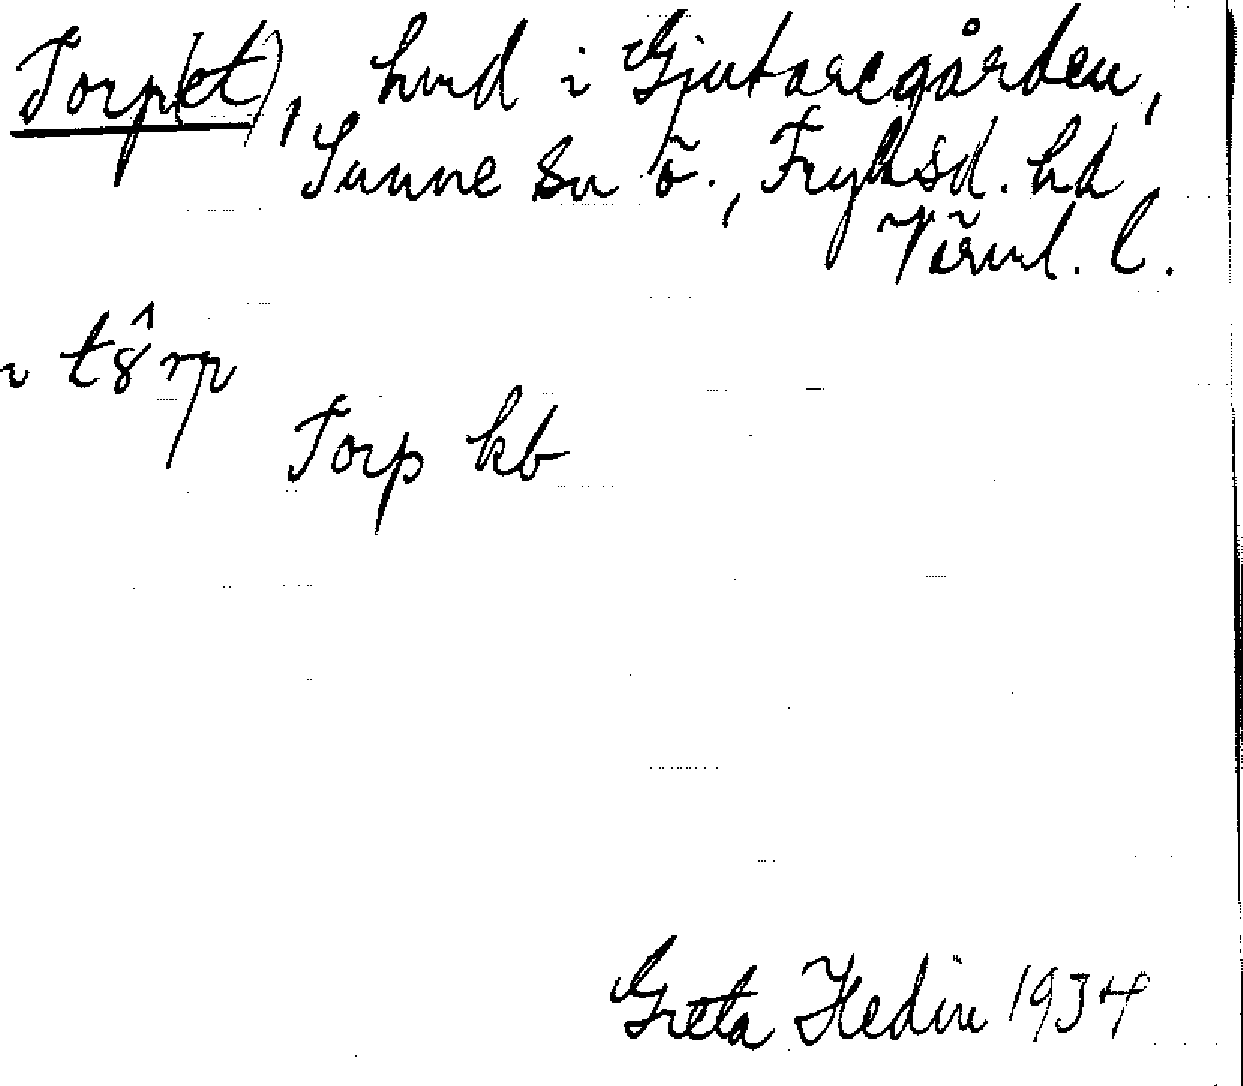 Torp(et), hmd i Gjutaregården,
Sunne sn ö., Fryksd. hd,
Värml. l.
i tȣ̂rp
Torp kb
Greta Hedin 1934